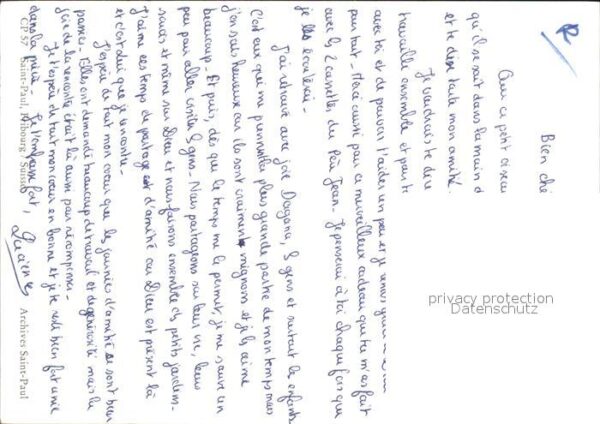 Bien ché
Que ce petit oiseau
qu'il se sait dans la main d
et te dire toute mon amitié.
Je voudrais te dire
travaillé ensemble et pour te
avec toi et de pouvoir t'aider un peu et je
pour tout - Merci aussi pour ce merveilleux cadeau que tu m'as fait
avec les 2 cassettes du Père Jean - Je penserai à toi chaque fois que
je les écouterai -
J'ai retrouvé avec joie Dogana, les gens et surtout les enfants
C'est eux qui me prennent la plus grande partie de mon temps mais
j'en suis heureuse car ils sont vraiment mignons et je les aime
beaucoup. Et puis, dès que le temps me le permet, je me sauve un
peu pour aller visiter les gens. Nous partageons sur leur vie, leurs
soucis et même sur Dieu et nous faisons ensemble des petits jardins.
J'aime ces temps de partage et d'amitié car Dieu est présent là
et c'est lui que je rencontre.
J'espère de tout mon coeur que les journées d'amitié se sont bien
passées. Elles ont demandé beaucoup de travail et de générosité mais la
joie de la rencontre était là aussi pour récompenser -
Je t'espère de tout mon coeur en bonne et je te reste bien fort unie
dans la prière - Je t'embrasse fort,
Lucienne
CP 57 Saint-Paul, Fribourg / Suisse
Archives Saint-Paul
privacy protection
Datenschutz